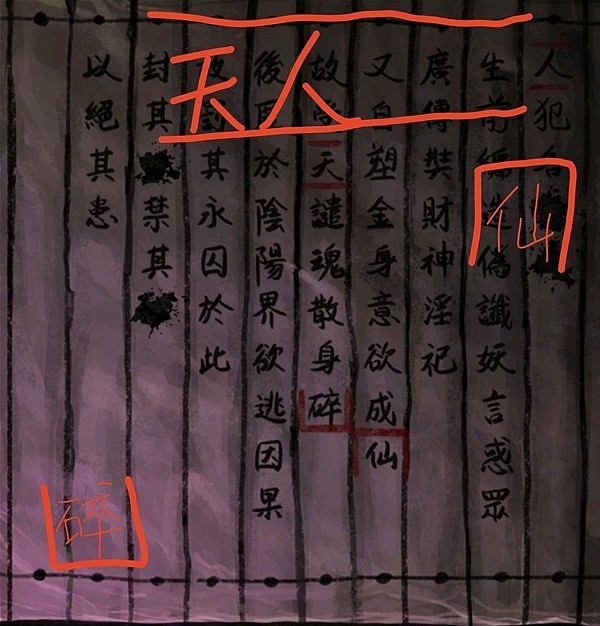 天人
仙
碎
人犯名
生前編造偽讖妖言惑眾
廣傳財神淫祀
又自塑金身意欲成仙
故天譴魂散身碎
後於陰陽界欲逃因果
其永囚於此
封其禁其
以絕其患